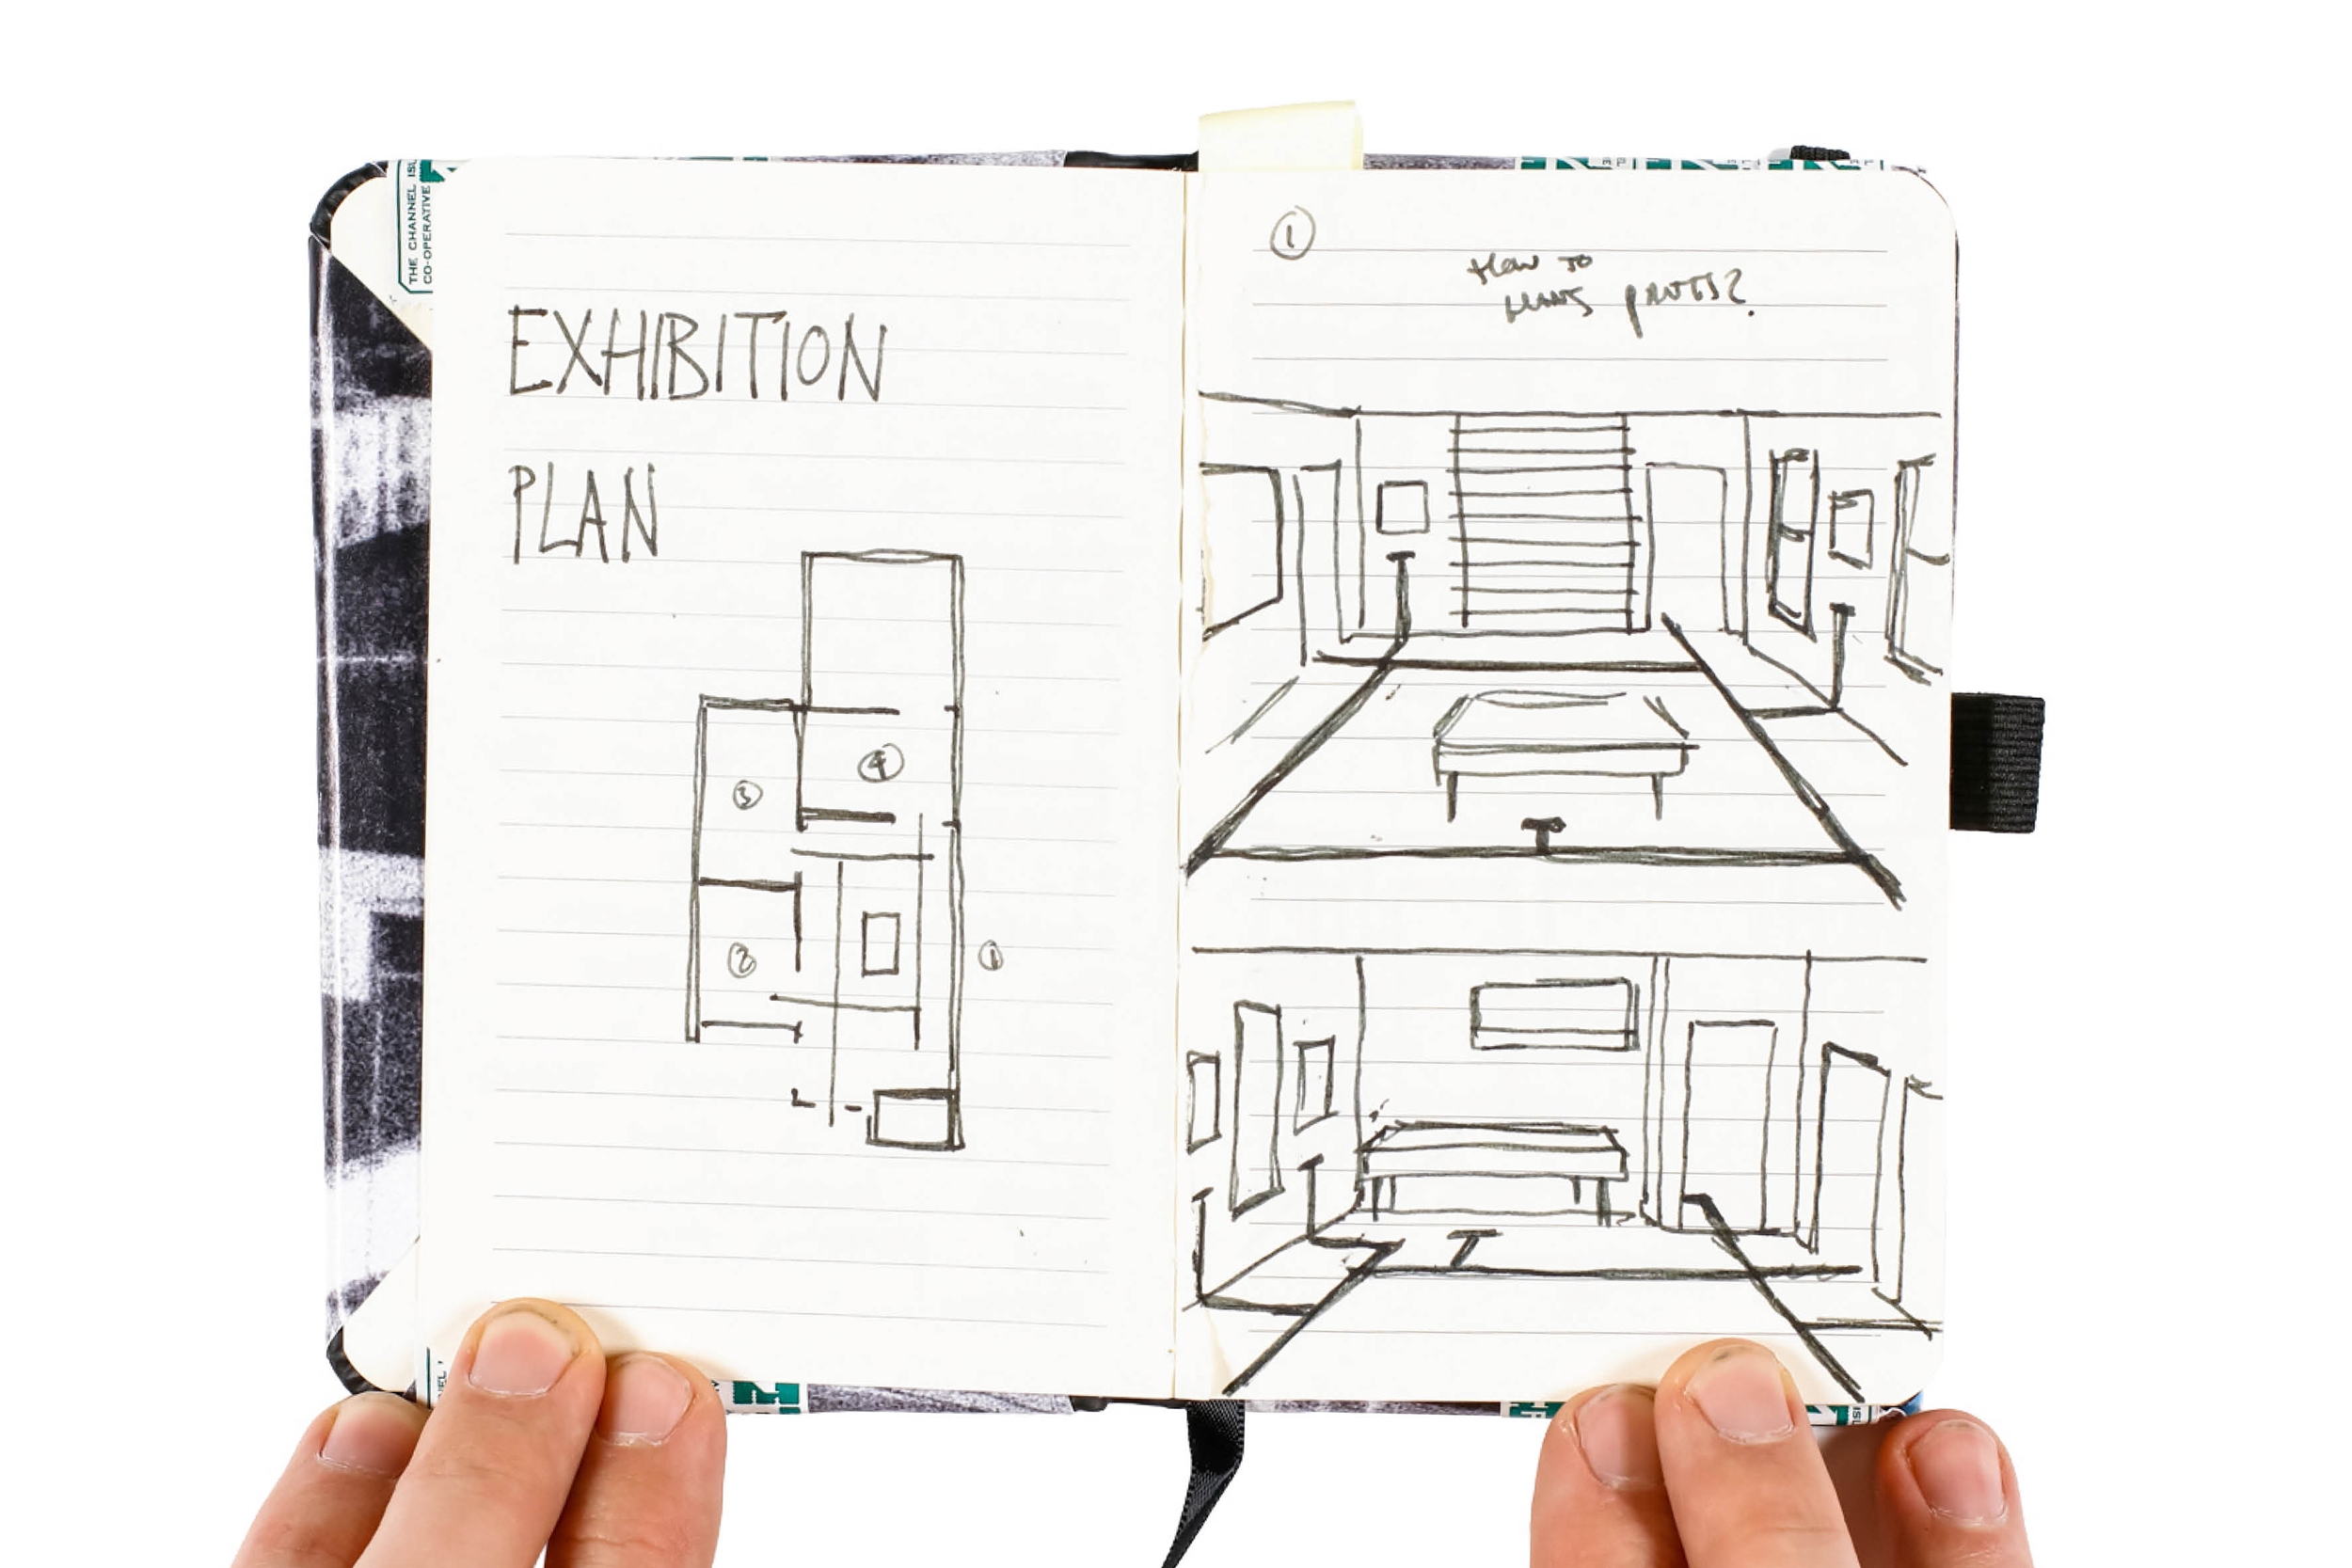 THE CHANNEL ISL
CO-OPERATIVE
EXHIBITION
PLAN
4
3
2
1
1
How to
hang prints?